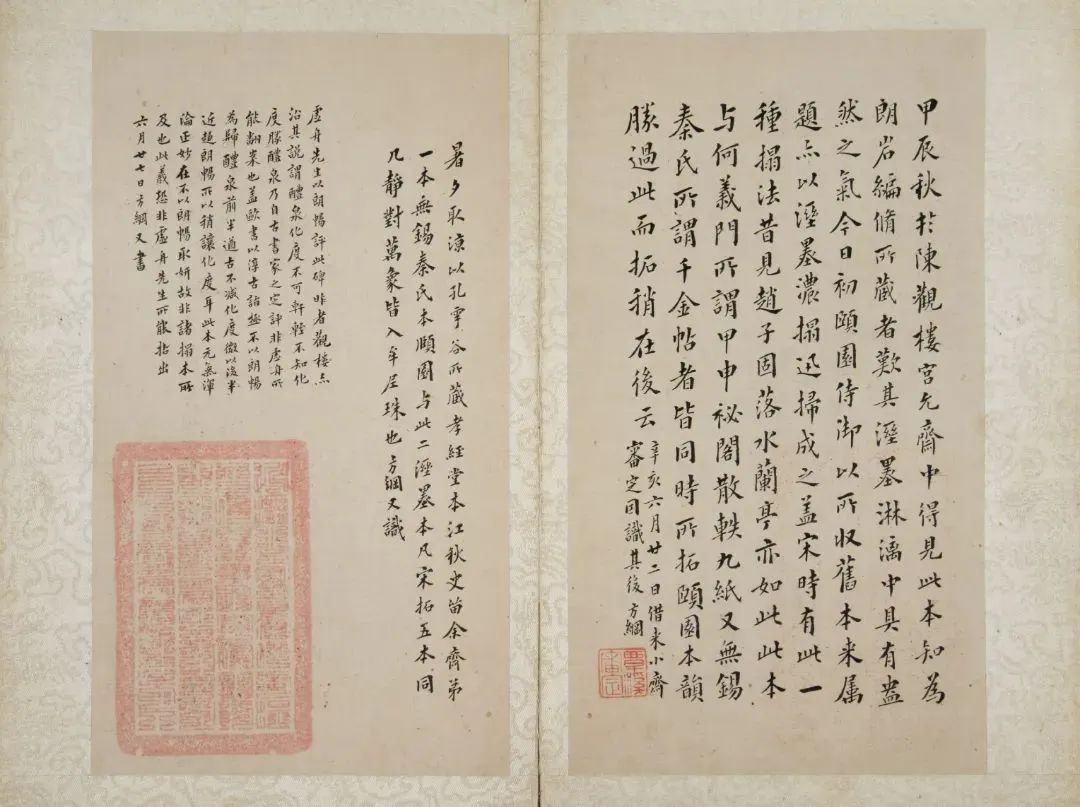 甲辰秋於陳觀樓宮允齋中得見此本知為
朗岩編脩所藏者歎其溼墨淋漓中具有盎
然之氣今日初頤園侍御以所收舊本来属
題亦以溼墨濃搨迅掃成之盖宋時有此一
種搨法昔見趙子固落水蘭亭亦如此此本
与何義門所謂甲申祕閣散帙九紙又無錫
秦氏所謂千金帖者皆同時所拓頤園本韻
勝過此而拓稍在後云
辛亥六月廿二日借来小齋
審定因識其後方綱
暑夕取涼以孔雩谷所藏孝經堂本江秋史笛余齋第
一本無錫秦氏本頤園与此二溼墨本凡宋拓五本同
几靜對萬象皆入牟尼珠也方綱又識
虛舟先生以朗暢評此碑昨者觀樓亦
沿其說謂醴泉化度不可軒輊不知化
度勝醴泉乃自古書家之定評非虛舟所
能翻案也蓋歐書以淳古詣極不以朗暢
為歸醴泉前半遒古不減化度微以後半
近趨朗暢所以稍讓化度耳此本元氣渾
淪正妙在不以朗暢取妍故非諸搨本所
及也此義恐非虛舟先生所能拈出
六月廿七日方綱又書